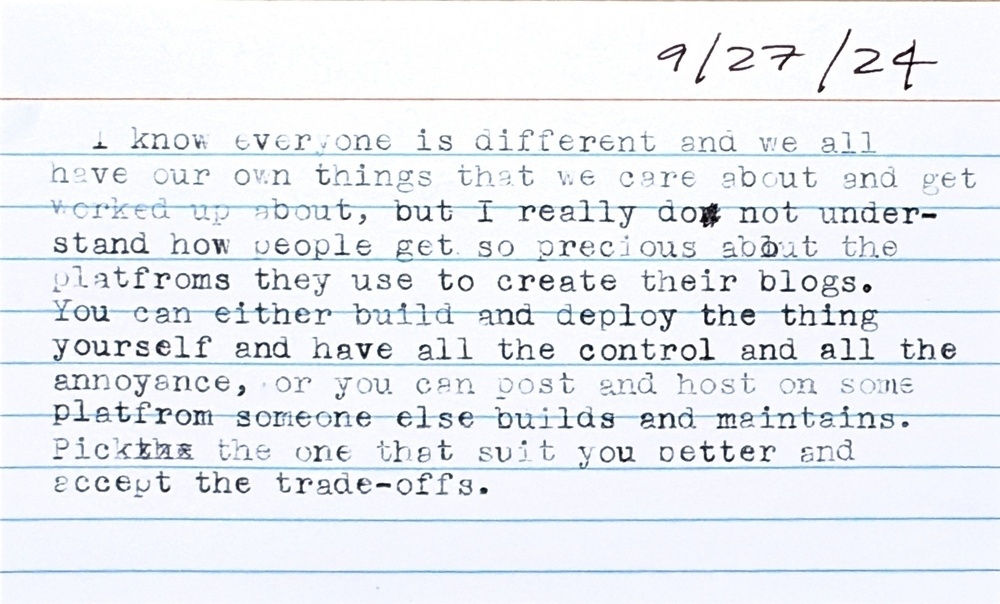 9/27/24
I know everyone is different and we all
have our own things that we care about and get
worked up about, but I really do not under-
stand how people get so precious about the
platfroms they use to create their blogs.
You can either build and deploy the thing
yourself and have all the control and all the
annoyance, or you can post and host on some
platfrom someone else builds and maintains.
Pick the one that suit you better and
accept the trade-offs.